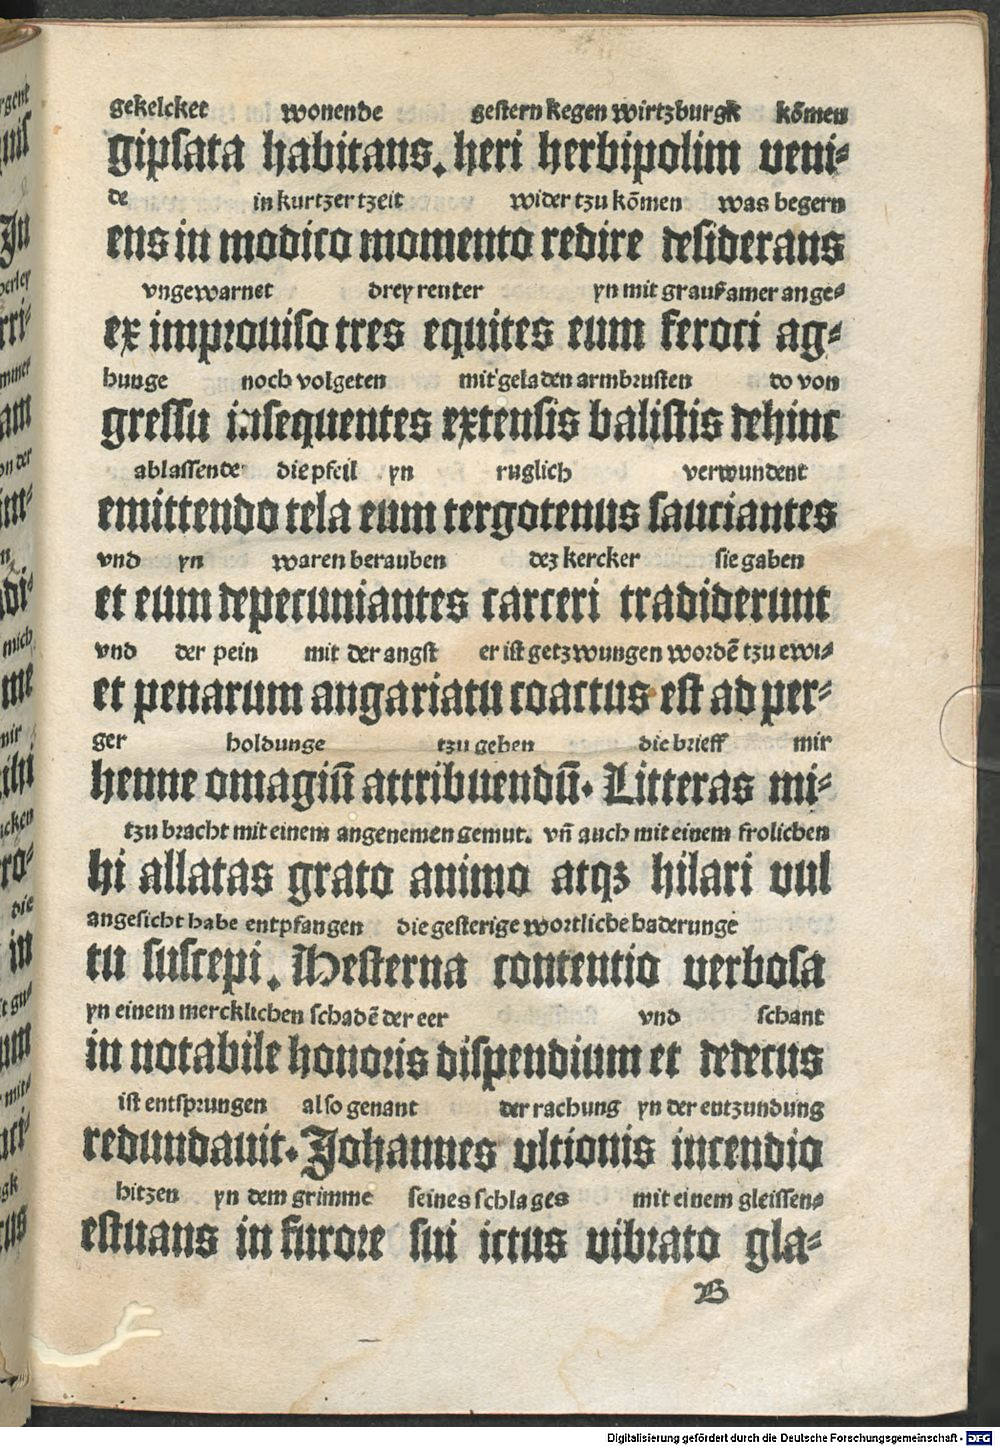 gekelcket wonende gestern kegen wirtzburgk kōmen
gipsata habitans. heri herbipolim veni⸗
de in kurtzer tzeit wider tzu kōmen was begern
ens in modico momento redire desiderans
vngewarnet drey reuter yn mit grausamer ange⸗
ex improuiso tres equites eum feroci ag⸗
hunge noch volgeten mit geladen armbrusten do von
gressu insequentes extensis balistis dehinc
ablassende die pfeil yn ruglich verwundent
emittendo tela eum tergotenus sauciantes
vnd yn waren berauben dez kercker sie gaben
et eum depecuniantes carceri tradiderunt
vnd der pein mit der angst er ist getzwungen wordē tzu ewi⸗
et penarum angariatu coactus est ad per⸗
ger holdunge tzu geben die brieff mir
henne omagiū attribuendū. Litteras mi⸗
tzu bracht mit einem angenemen gemut. vn̄ auch mit einem frolichen
hi allatas grato animo atqꝫ hilari vul
angesicht habe entpfangen die gesterige wortliche haderunge
tu suscepi. Hesterna contentio verbosa
yn einem mercklichen schadē der eer vnd schant
in notabile honoris dispendium et dedecus
ist entsprungen also genant der rachung yn der entzundung
redundauit. Johannes vltionis incendio
hitzen yn dem grimme seines schlages mit einem gleissen⸗
estuans in furore sui ictus vibrato gla⸗
B
Digitalisierung gefördert durch die Deutsche Forschungsgemeinschaft - DFG